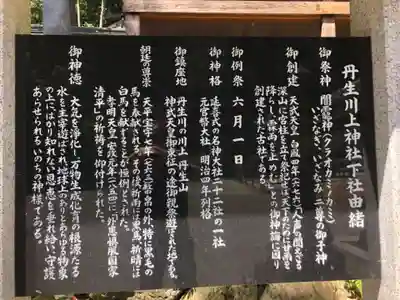 丹生川上神社下社由緒
御祭神 闇龗神(クラオカミノカミ)
いざなぎ・いざなみ 二尊の御子神
御創建 天武天皇 白鳳四年(六七六)人声の聞えざる
深山に宮柱を立て祭祀せば、天下のために甘雨を
降らし霖雨を止めむ」との御神誨に因り
創建された古社である。
御例祭 六月一日
御神格 延喜式の名神大社 二十二社の一社
元官幣大社 明治四年列格
御鎮座地 丹生の川の川上 丹生山
神武天皇御東征の途御親祭遊ばされた地である
朝廷の尊崇 天平宝字七年(七六三)幣帛の外、特に黒毛の
馬を奉献される。その後祈雨には黒馬、祈晴には
白馬を献ずることを恒例とされた。
孝明天皇 安政元年(一八五四)には異狄懾服国家
清平の祈祷を仰付けられた。
御神徳 大気を浄化し、万物生成化育の根源たる
水を主宰遊ばされ、地球上のありとあらゆる物象
の上にはかり知れない恩恵を垂れ給い、守護
あらせられるいのちの神様である。